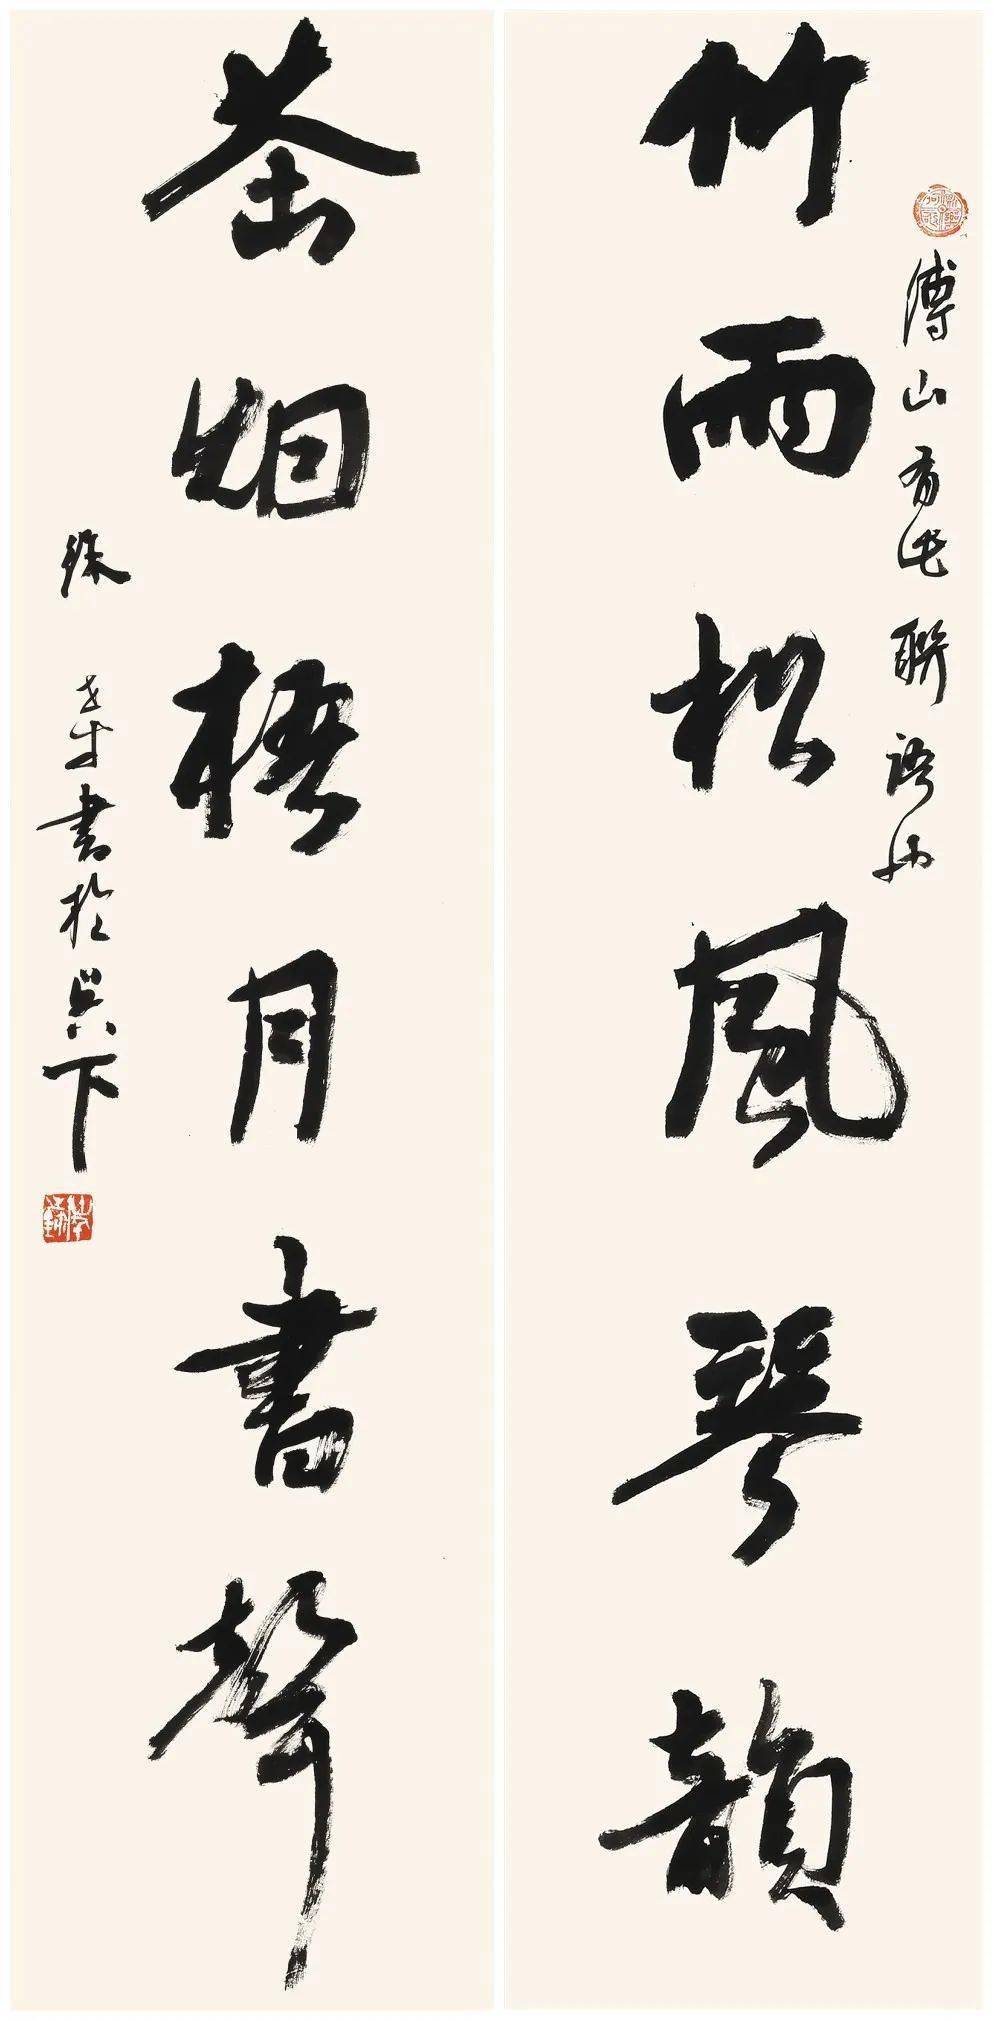 傅山有此聯語
竹雨松風琴韻
茶烟梧月書聲
書於吳下